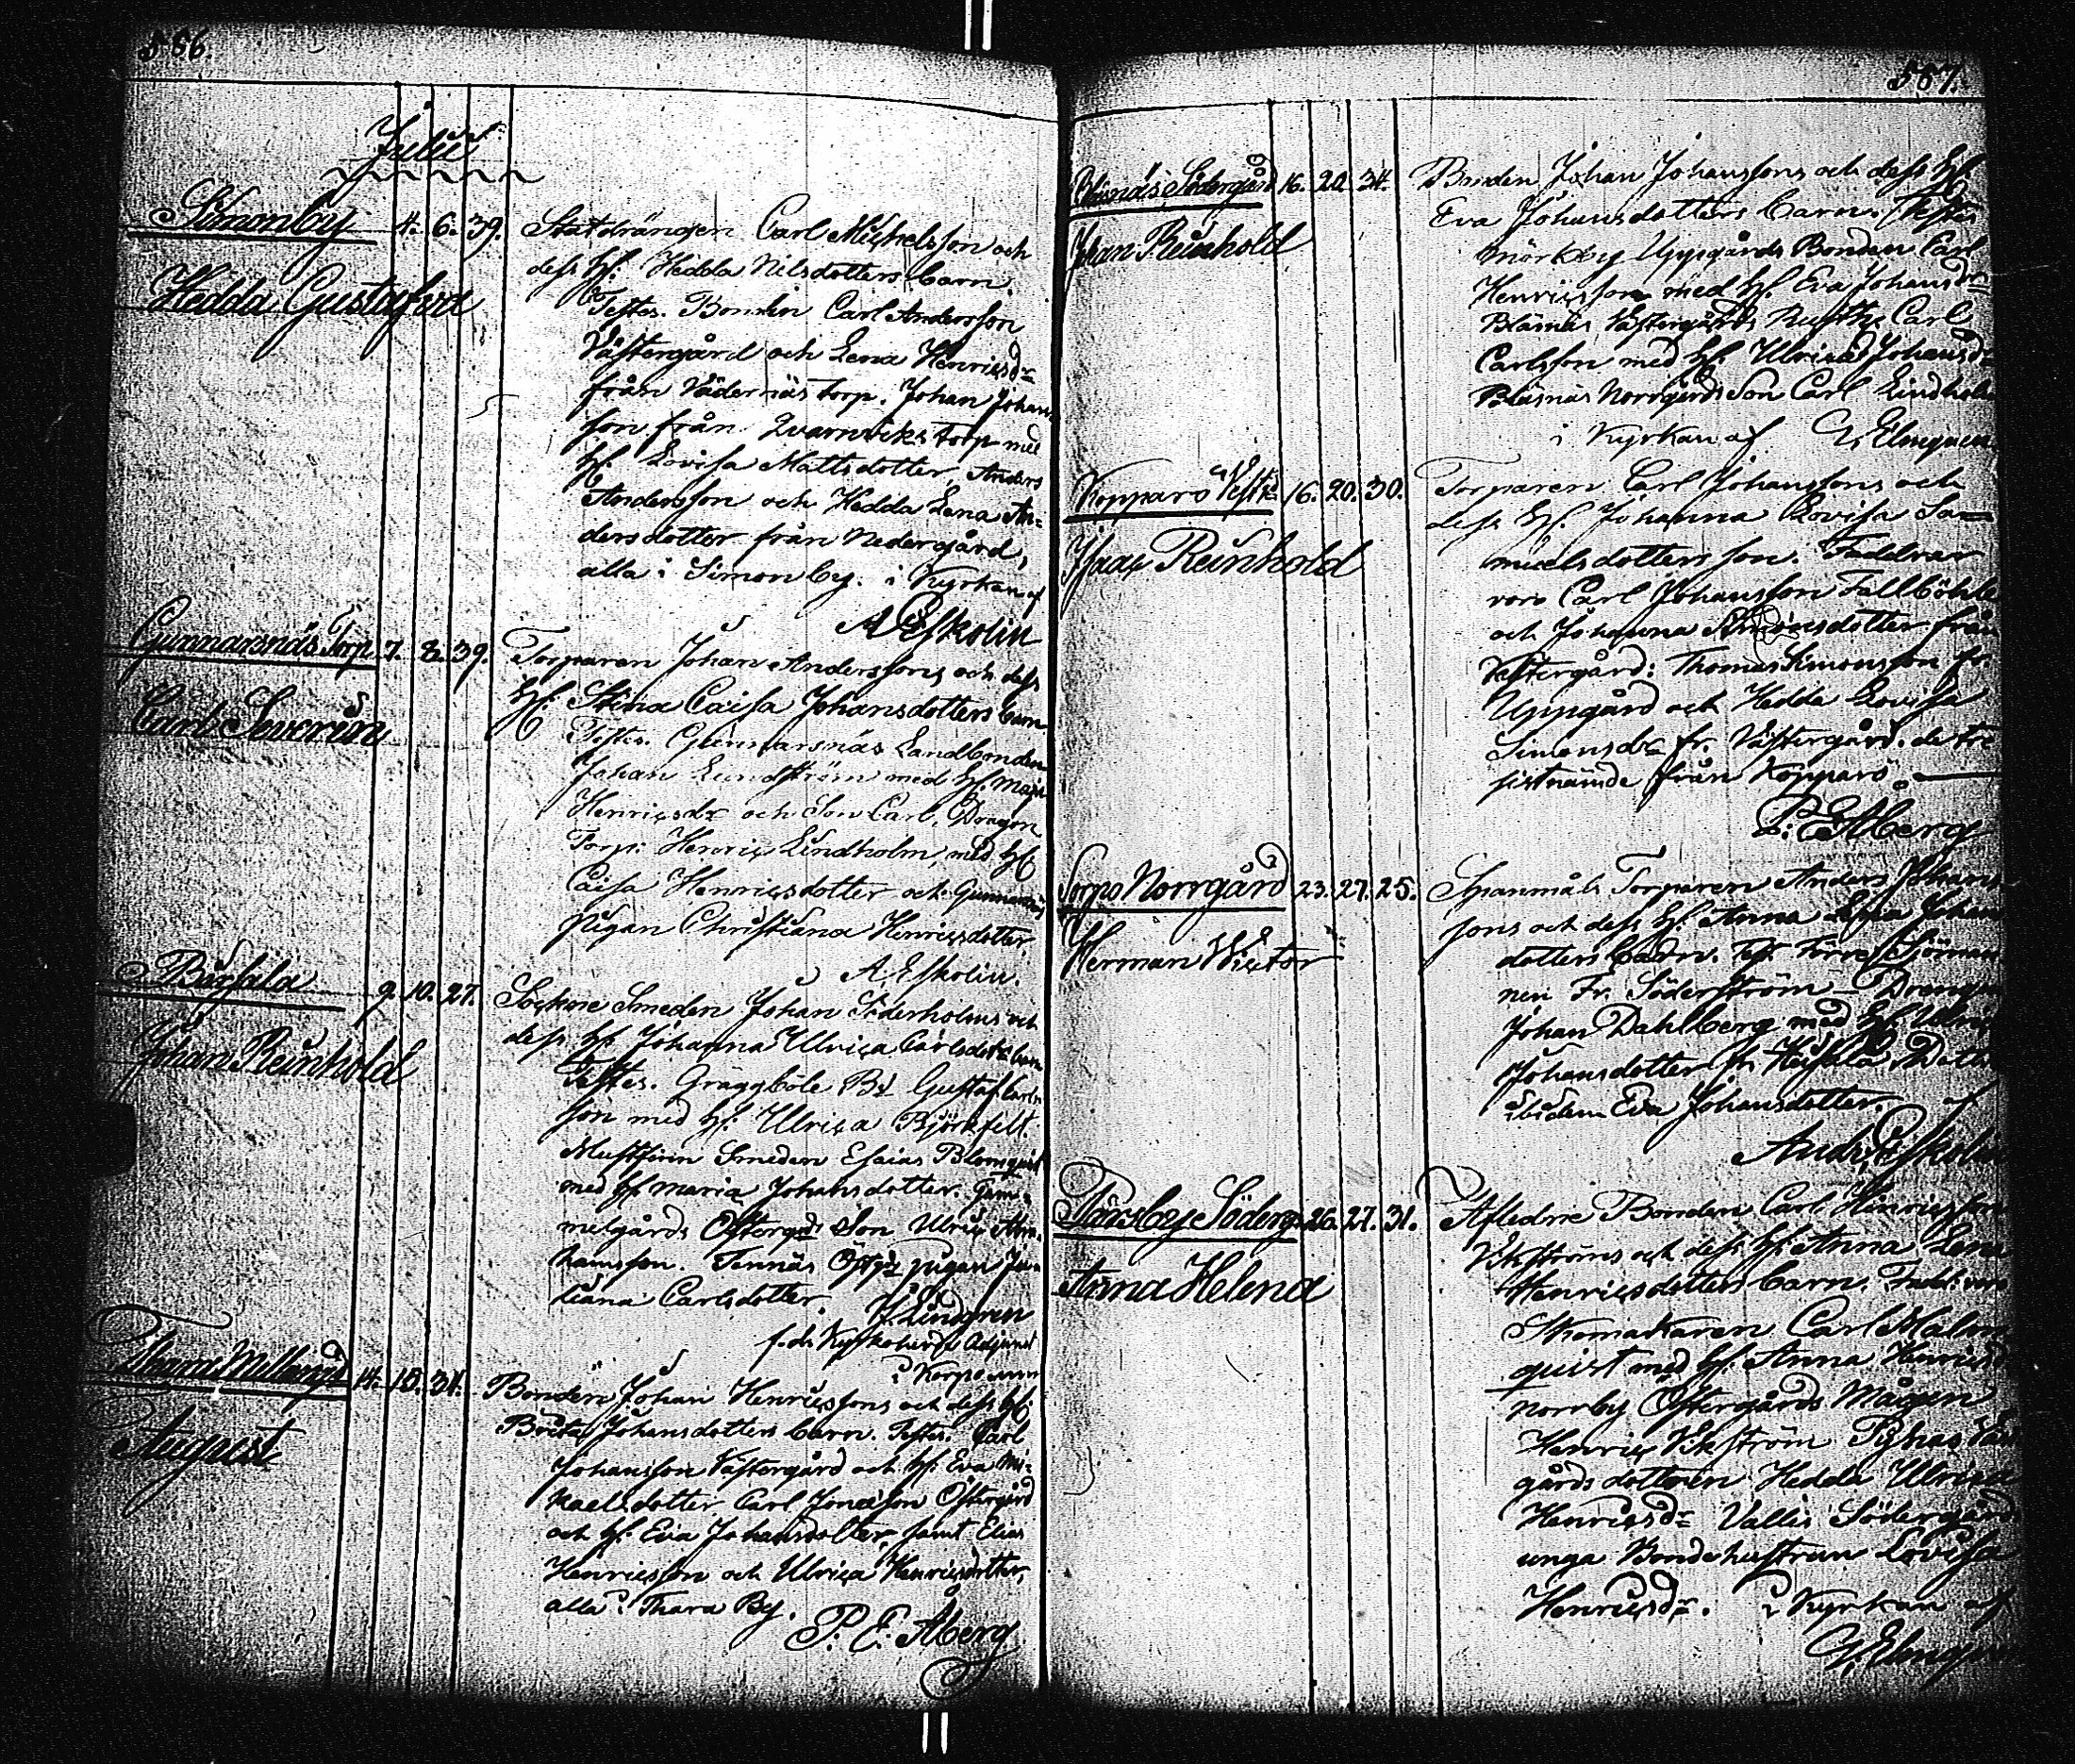 566.
Julii
Simonby 4. 6. 39. Statdrängen Carl Michelsson och
dess H: Hedda Nilsdotters barn.
Hedda Gustafva
Testes. Bonden Carl Andersson
Västergård och Lena Henricsdr
från Vädernäs torp. Johan Johans
son från Qvarnviks torp med
H. Lovisa Mattsdotter, Anders
Andersson och Hedda Lena An-
dersdotter från Nedergård,
alla i Simonby. i Kyrkan af
A Eskolin
Gunnarsnäs Torp 7. 8. 39. Torparen Johan Anderssons och dess
H: Stina Caisa Johansdotters barn
Carl Severin
Testes. Gunnarsnäs Landbonden
Johan Lundström med H. Maja
Henricsdr och Son Carl, Dragon
Torp: Henric Lindholm, med H
Caisa Henricsdotter och Gunnarsnäs
pigan Christiana Henricsdotter
A. Eskolin.
9. 10. 27. Sockne Smeden Johan Söderholms och
dess H: Johanna Ulrica Carlsdotrs barn
Johan Reinhold
Testes. Gräggböle Bd Gustaf Carls
son med H: Ulrica Björkfelt.
Smeden Esaias Blomqvist
med H. Maria Johansdotter. Gam-
melgårds Östergds Son Ulric Abra
hamsson. Finnäs Östgds pigan Ju-
liana Carlsdotter.
Lindgren
Adjunct
i Korpo
Mellangd 14. 15. 31. Bonden Johan Henricssons och dess H:
Brita Johansdotters barn. Testes. Carl
August
Johansson Västergård och H: Eva Mi-
kaelsdotter Carl Jonasson Östergård
och H: Eva Johansdotter, samt Elias
Henricsson och Ulrica Henricsdotter,
alla i Thara By.
P. E. Åberg
567.
Bläsnäs Södergård 16. 20. 34. Bonden Johan Johanssons och dess H:
Eva Johansdotters barn. Testes
Johan Reinhold
Mörkby Uppgårds Bonden Carl
Henricsson med H. Eva Johansdr
Bläsnäs Västergårds Rusth: Carl
Carlsson med H. Ulrica Johansdr
Bläsnäs Norrgårds Son Carl Lindholm
i Kyrkan af Elmgren
Kopparö Vestg 16. 20. 30. Torparen Carl Johanssons och
dess H. Johanna Lovisa Sa-
Isaac Reinhold
muelsdotters son. Faddrar
voro Carl Johansson Fallböhle
och Johanna Simonsdotter från
Västergård: Thomas Simonsson fr.
Uppgård och Hedda Lovisa
Simonsdr fr. Västergård. de tre
sistnämde från Kopparö.
P. E. Åberg
Korpo Norrgård 23. 27. 25. Spanmåls Torparen Anders Johans
sons och dess H. Anna Lena Johans
Herman Victor
dotters barn. Test. Förre Sjöman
nen Fr. Söderström Dragon
Johan Dahlberg med H. Ulrica
Johansdotter fr.
ibidem Eva Johansdotter. af
Andr. Eskolin
Pärsby Söderg 26. 27. 31. Afledne Bonden Carl Henricsson
Vikströms och dess H: Anna Lena
Anna Helena
Henricsdotters barn. Fadd. voro
Skomakaren Carl Malm-
quist med H. Anna Henricsdr
Norrby Östergårds Mågen
Henric Vikström
gårds dottren Hedda Ulrica
Henricsdr Vallis Södergårds
unga Bondehustrun Lovisa
Henricsdr. i Kyrkan af
Elmgren